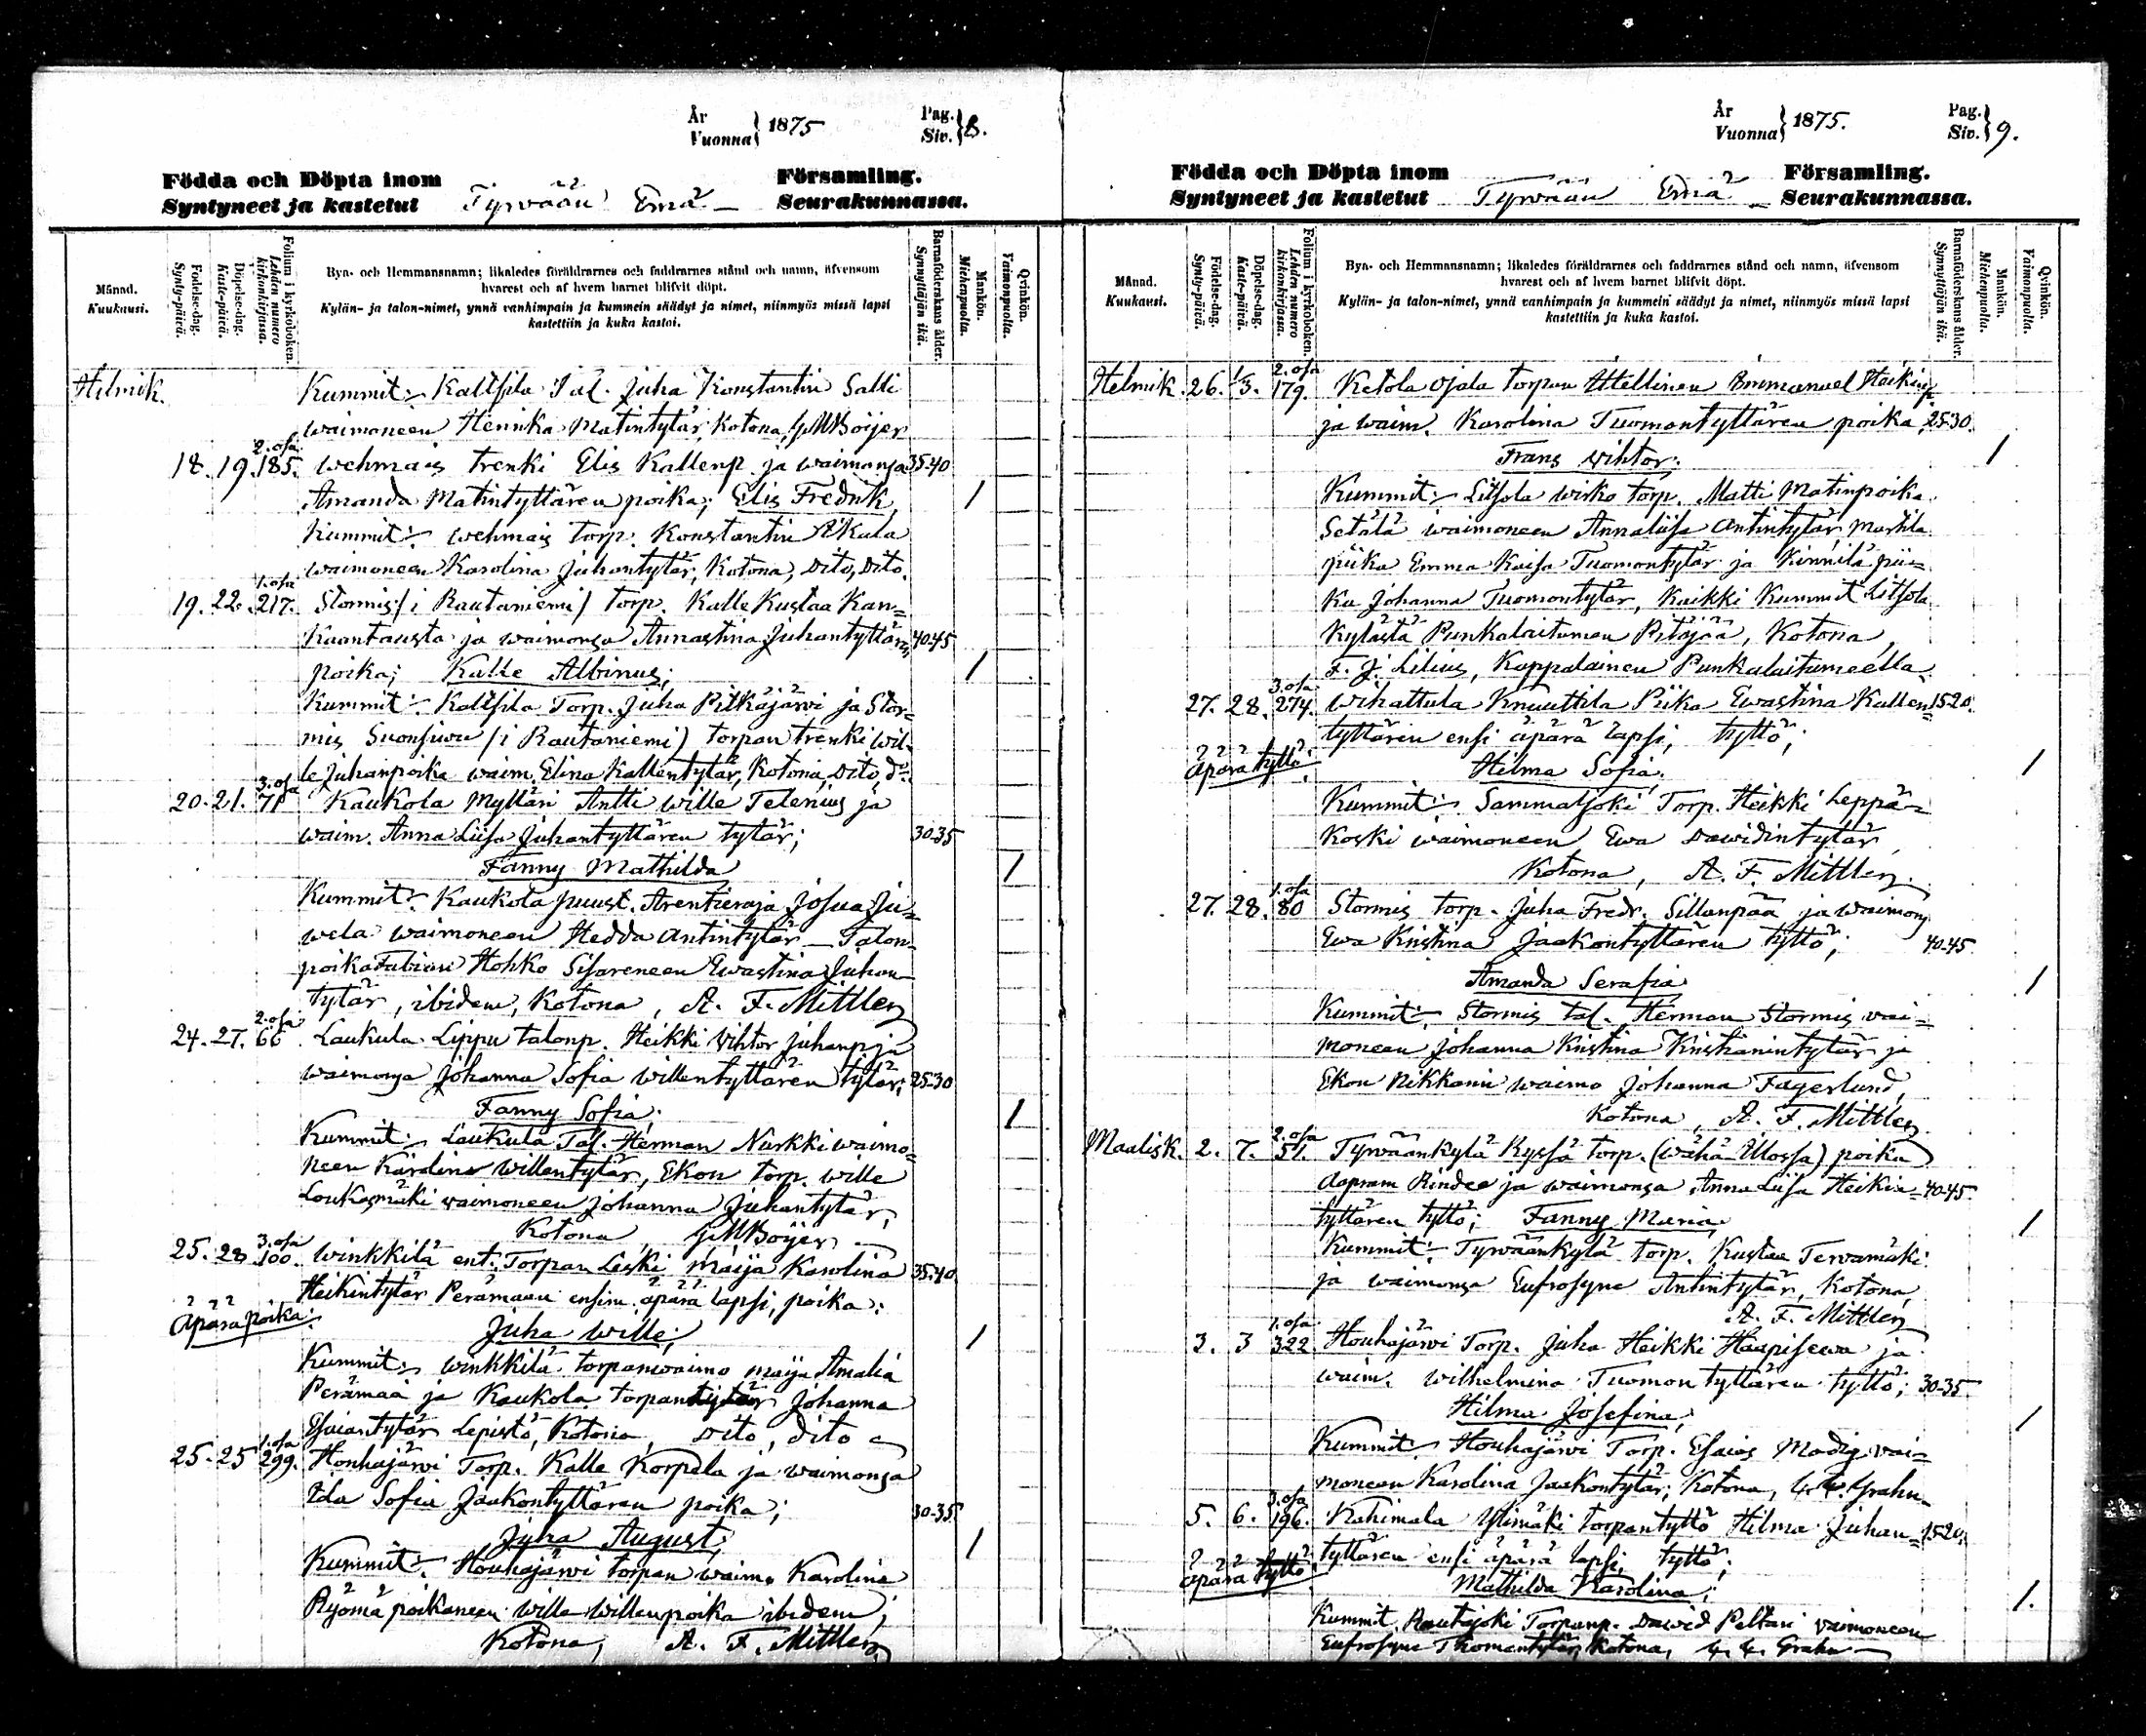 År
Vuonna } 1875
Pag.
Siv. } 8.
Födda och Döpta inom
Syntyneet ja kastetut
Tyrvään Emä
Församling.
Seurakunnassa.
Månad.
Kuukausi.
Födelse-dag.
Synty-päivä.
Döpelse-dag.
Kaste-päivä.
Folium i kyrkoboken.
Lehden numero kirkonkirjassa.
Bya- och Hemmansnamn; likaledes föräldrarnes och faddrarnes stånd och namn, äfvensom
hvarest och af hvem barnet blifvit döpt.
Kylän- ja talon-nimet, ynnä vanhimpain ja kummein säädyt ja nimet, niinmyös missä lapsi
kastettiin ja kuka kastoi.
Barnaföderskans ålder.
Synnyttäjän ikä.
Mankön.
Miehenpuolta.
Qvinkön.
Vaimonpuolta.
Helmik. Kummit: Kaltsila Tal. Juha Konstantin Salli
waimoneen Henrika Matintytär, Kotona, G M Boijer
18. 19. 2. osa 185. wehmais trenki Elis Kallenp. ja waimonsa 35-40
Amanda Matintyttären poika; Elis Fredrik 1
Kummit: wehmais torp. Konstantin Akula
waimoneen Karolina Juhantytär, Kotona, Dito, Dito.
19. 22. 1. osa 217. Stormis (i Rautaniemi) torp. Kalle Kustaa Kan=
kaantausta ja waimonsa Annastina Juhantyttären 40-45
poika; Kalle Albinus; 1
Kummit: Kaltsila Torp. Juha Pitkäjärvi ja Stor=
mis Suonsuvu (i Rautaniemi) torpan trenki Wil=
le Juhanpoika waim. Elina Kallentytär, Kotona, Dito, do.
20. 21. 3. osa 71 Kaukola Myllari Antti Wille Telenius ja
waim. Anna Liisa Juhantyttären tytär; 30-35
Fanny Mathilda 1
Kummit: Kaukola puust. Arentieraja Josua Ju=
wela waimoneen Hedda Antintytär — Talon=
poika Fabian Hohko Sisareneen Ewastina Juhan=
tytär, ibidem, Kotona, A. F. Mittler
24. 27. 2. osa 66. Laukula Lippu talonp. Heikki Vihtor Juhanp. ja
waimonsa Johanna Sofia Willentyttären tytär; 25-30
Fanny Sofia; 1
Kummit: Laukula Tal. Herman Nurkki waimo=
neen Karolina Willentytär, Ekon torp. Wille
Loukasmäki waimoneen Johanna Juhantytär,
Kotona G M Boijer
25. 28. 3. osa 100. Winkkilä ent. Torpan Leski Maija Karolina 35-40
Heikintytär Perämaan ensim. äpärä lapsi, poika:
Äpära poika:
Juha Wille; 1
Kummit: Winkkilä torpanwaimo Maija Amalia
Perämaa ja Kaukola torpantytär Johanna
Esaiantytär Lepistö, Kotona, Dito, Dito
25. 25. 1. osa 299. Houhajärwi Torp. Kalle Korpela ja waimonsa
Ida Sofia Jaakontyttären poika; 30-35
Juha August; 1
Kummit: Houhajärwi torpan waimo Karolina
Ryömä poikaneen Wille Willenpoika ibidem;
Kotona, A. F. Mittler
År
Vuonna } 1875.
Pag.
Siv. } 9.
Födda och Döpta inom
Syntyneet ja kastetut
Tyrvään Emä
Församling.
Seurakunnassa.
Månad.
Kuukausi.
Födelse-dag.
Synty-päivä.
Döpelse-dag.
Kaste-päivä.
Folium i kyrkoboken.
Lehden numero kirkonkirjassa.
Bya- och Hemmansnamn; likaledes föräldrarnes och faddrarnes stånd och namn, äfvensom
hvarest och af hvem barnet blifvit döpt.
Kylän- ja talon-nimet, ynnä vanhimpain ja kummein säädyt ja nimet, niinmyös missä lapsi
kastettiin ja kuka kastoi.
Barnaföderskans ålder.
Synnyttäjän ikä.
Mankön.
Miehenpuolta.
Qvinkön.
Vaimonpuolta.
Helmik. 26. 1/3. 2. osa 179. Ketola Ojala torpan Emmanuel Heikinp
ja waim. Karolina Tuomontyttären poika; 25-30.
Frans Wihtor; 1
Kummit: Litsola Wirko torp. Matti Matinpoika
Setälä waimoneen Annaliisa Antintytär, Marttila
piika Emma Kaisa Tuomontytär ja Kinnilä pii=
ka Johanna Tuomontytär, Kaikki Kummit Litsola
kylästä Punkalaitumen Pitäjää, Kotona,
F. J. Lilius, Kappalainen Punkalaitumeella
27. 28. 3. osa 274. Wihattula Knuuttila Piika Ewastina Kallen= 15-20.
tyttären ensi äpärä lapsi, tyttö;
Äpära tyttö.
Hilma Sofia; 1
Kummit: Sammatjoki Torp. Heikki Leppä=
koski waimoneen Ewa Dawidintytär,
Kotona, A. F. Mittler
27. 28. 1. osa 80 Stormis torp. Juha Fredr. Sillanpää ja waimons.
Ewa Kristina Jaakontyttären tyttö; 40-45
Amanda Serafia 1
Kummit: Stormis tal. Herman Stormis wai=
moneen Johanna Kristina Kristianintytär ja
Ekon Nikkarin waimo Johanna Fagerlund,
Kotona, A. F. Mittler
Maalisk. 2. 7. 2. osa 51. Tyrwäänkylä Ryssä torp. (wähä Ulossa) poika
Aapram Rindee ja waimonsa Anna Liisa Heikin= 40-45
tyttären tyttö; Fanny Maria, 1
Kummit: Tyrwäänkylä torp. Kustaa Terwamäki
ja waimonsa Eufrosyne Antintytär, Kotona,
A. F. Mittler
3. 3 1. osa 322 Houhajärvi Torp. Juha Heikki Haapisewa ja
waim. Wilhelmina Tuomontyttären tyttö; 30-35
Hilma Josefina; 1
Kummit: Houhajärwi Torp. Esaias Modig wai=
moneen Karolina Jaakontytär; Kotona, Grahn
5. 6. 3. osa 196. Kahimala Ylimäki torpantyttö Hilma Juhan= 15-20.
tyttären ensi äpärä lapsi, tyttö;
äpärä tyttö.
Mathilda Karolina; 1.
Kummit. Rautajoki Torpanp. Dawid Peltari waimoneen
Eufrosyne Thomantytär, Kotona, Grahn